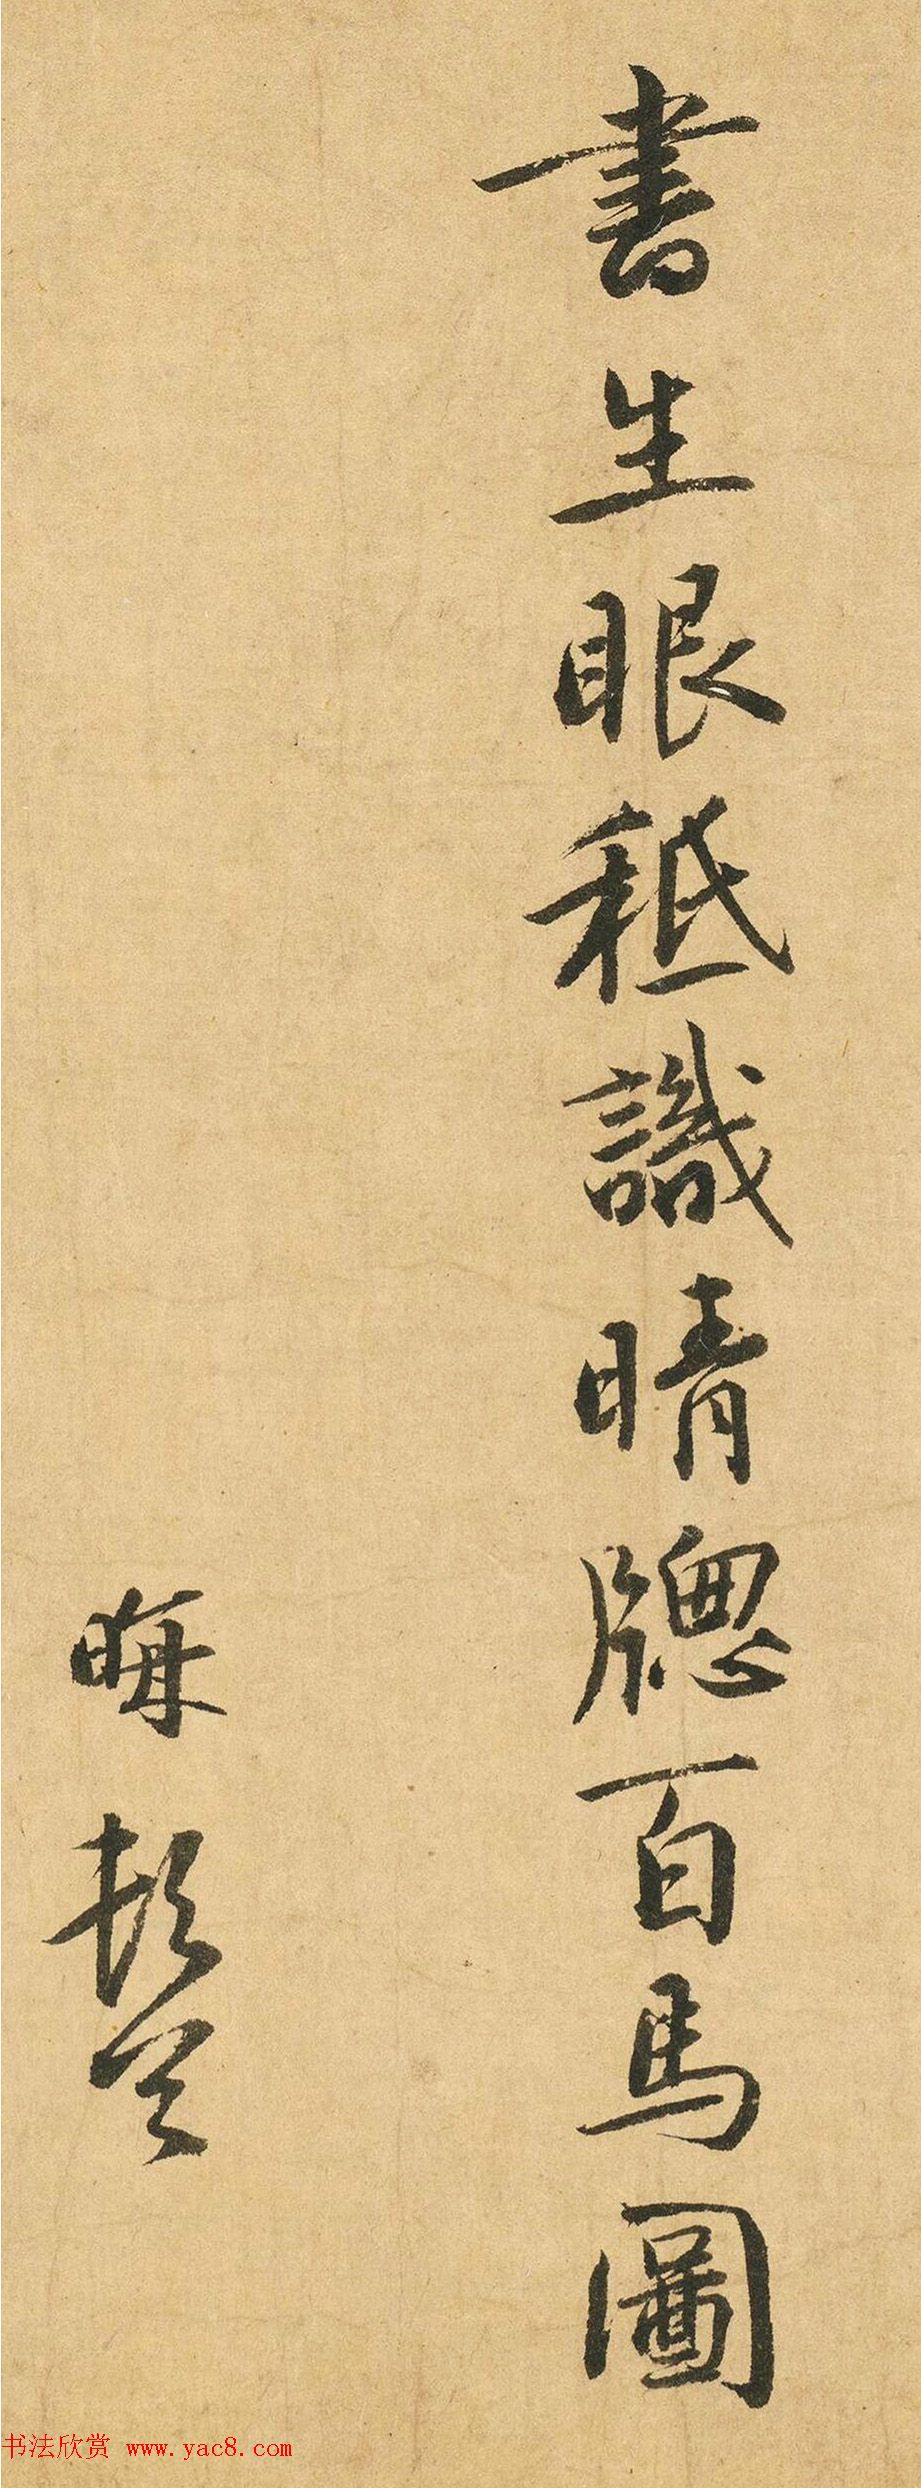 書生眼秪識晴牕百馬圖
晦
书法欣赏 www.yac8.com